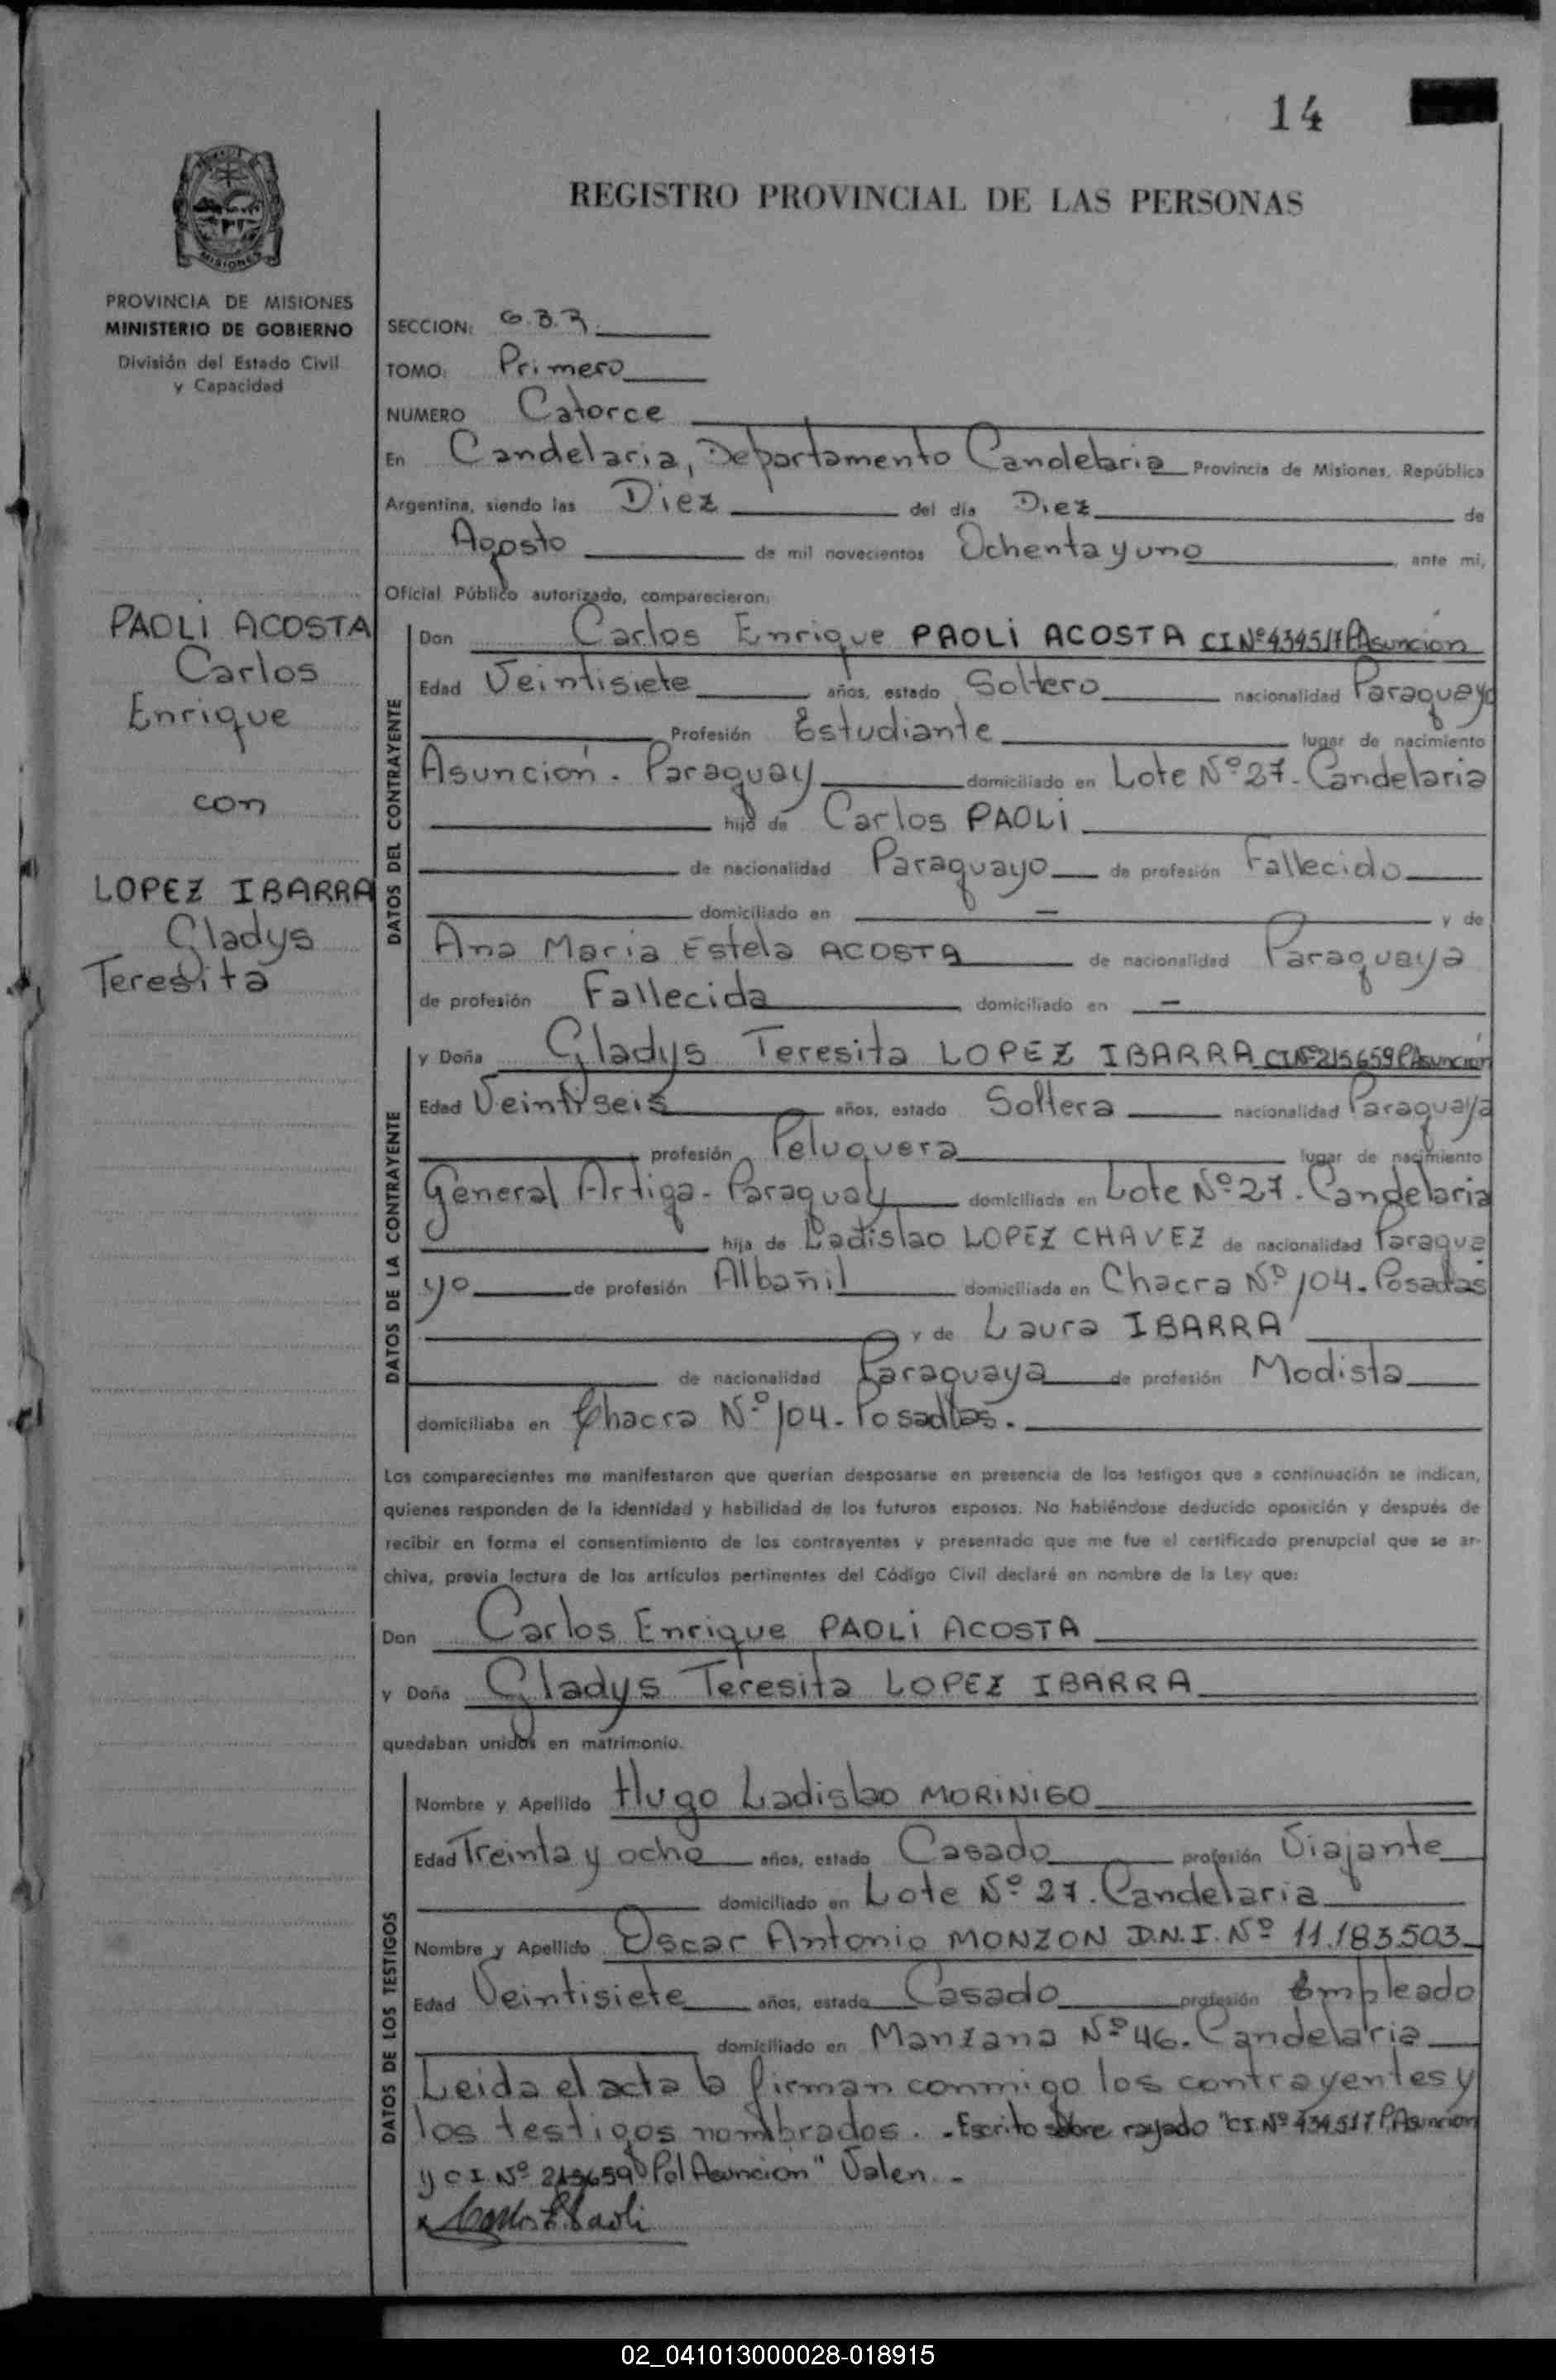 14
REGISTRO PROVINCIAL DE LAS PERSONAS
MISIONES
PROVINCIA DE MISIONES
MINISTERIO DE GOBIERNO
División del Estado Civil
y Capacidad
PAOLI ACOSTA
Carlos
Enrique
con
LOPEZ IBARRA
Gladys
Teresita
SECCION:
TOMO: Primero
NUMERO Catorce
En Candelaria, Departamento Candelaria Provincia de Misiones, República
Argentina, siendo las Diez del día Diez de
Agosto de mil novecientos Ochenta y uno ante mi,
Oficial Público autorizado, comparecieron:
DATOS DEL CONTRAYENTE
Don Carlos Enrique PAOLI ACOSTA CI Nº 434517 P.Asunción
Edad Veintisiete años, estado Soltero nacionalidad Paraguayo
Profesión Estudiante lugar de nacimiento
Asunción - Paraguay domiciliado en Lote Nº 27 - Candelaria
hijo de Carlos PAOLI
de nacionalidad Paraguayo de profesión Fallecido
domiciliado en — y de
Ana Maria Estela ACOSTA de nacionalidad Paraguaya
de profesión Fallecida domiciliado en —
DATOS DE LA CONTRAYENTE
y Doña Gladys Teresita LOPEZ IBARRA CI Nº 215659 P.Asunción
Edad Veintiseis años, estado Soltera nacionalidad Paraguaya
profesión Peluquera lugar de nacimiento
General Artiga - Paraguay domiciliada en Lote Nº 27 - Candelaria
hija de Ladislao LOPEZ CHAVEZ de nacionalidad Paragua
yo de profesión Albañil domiciliada en Chacra Nº 104 - Posadas
y de Laura IBARRA
de nacionalidad Paraguaya de profesión Modista
domiciliaba en Chacra Nº 104 - Posadas.
Los comparecientes me manifestaron que querían desposarse en presencia de los testigos que a continuación se indican,
quienes responden de la identidad y habilidad de los futuros esposos. No habiéndose deducido oposición y después de
recibir en forma el consentimiento de los contrayentes y presentado que me fue el certificado prenupcial que se ar-
chiva, previa lectura de los artículos pertinentes del Código Civil declaré en nombre de la Ley que:
Don Carlos Enrique PAOLI ACOSTA
y Doña Gladys Teresita LOPEZ IBARRA
quedaban unidos en matrimonio.
DATOS DE LOS TESTIGOS
Nombre y Apellido Hugo Ladislao MORINIGO
Edad Treinta y ocho años, estado Casado profesión Viajante
domiciliado en Lote Nº 27 - Candelaria
Nombre y Apellido Oscar Antonio MONZON D.N.I. Nº 11.183.503
Edad Veintisiete años, estado Casado profesión Empleado
domiciliado en Manzana Nº 46 - Candelaria
Leida el acta la firman conmigo los contrayentes y
los testigos nombrados. - Escrito sobre rayado "CI. Nº 434517 P.Asunción
y CI Nº 215659 Pol Asunción" Valen. -
x Carlos E. Paoli
02_041013000028-018915